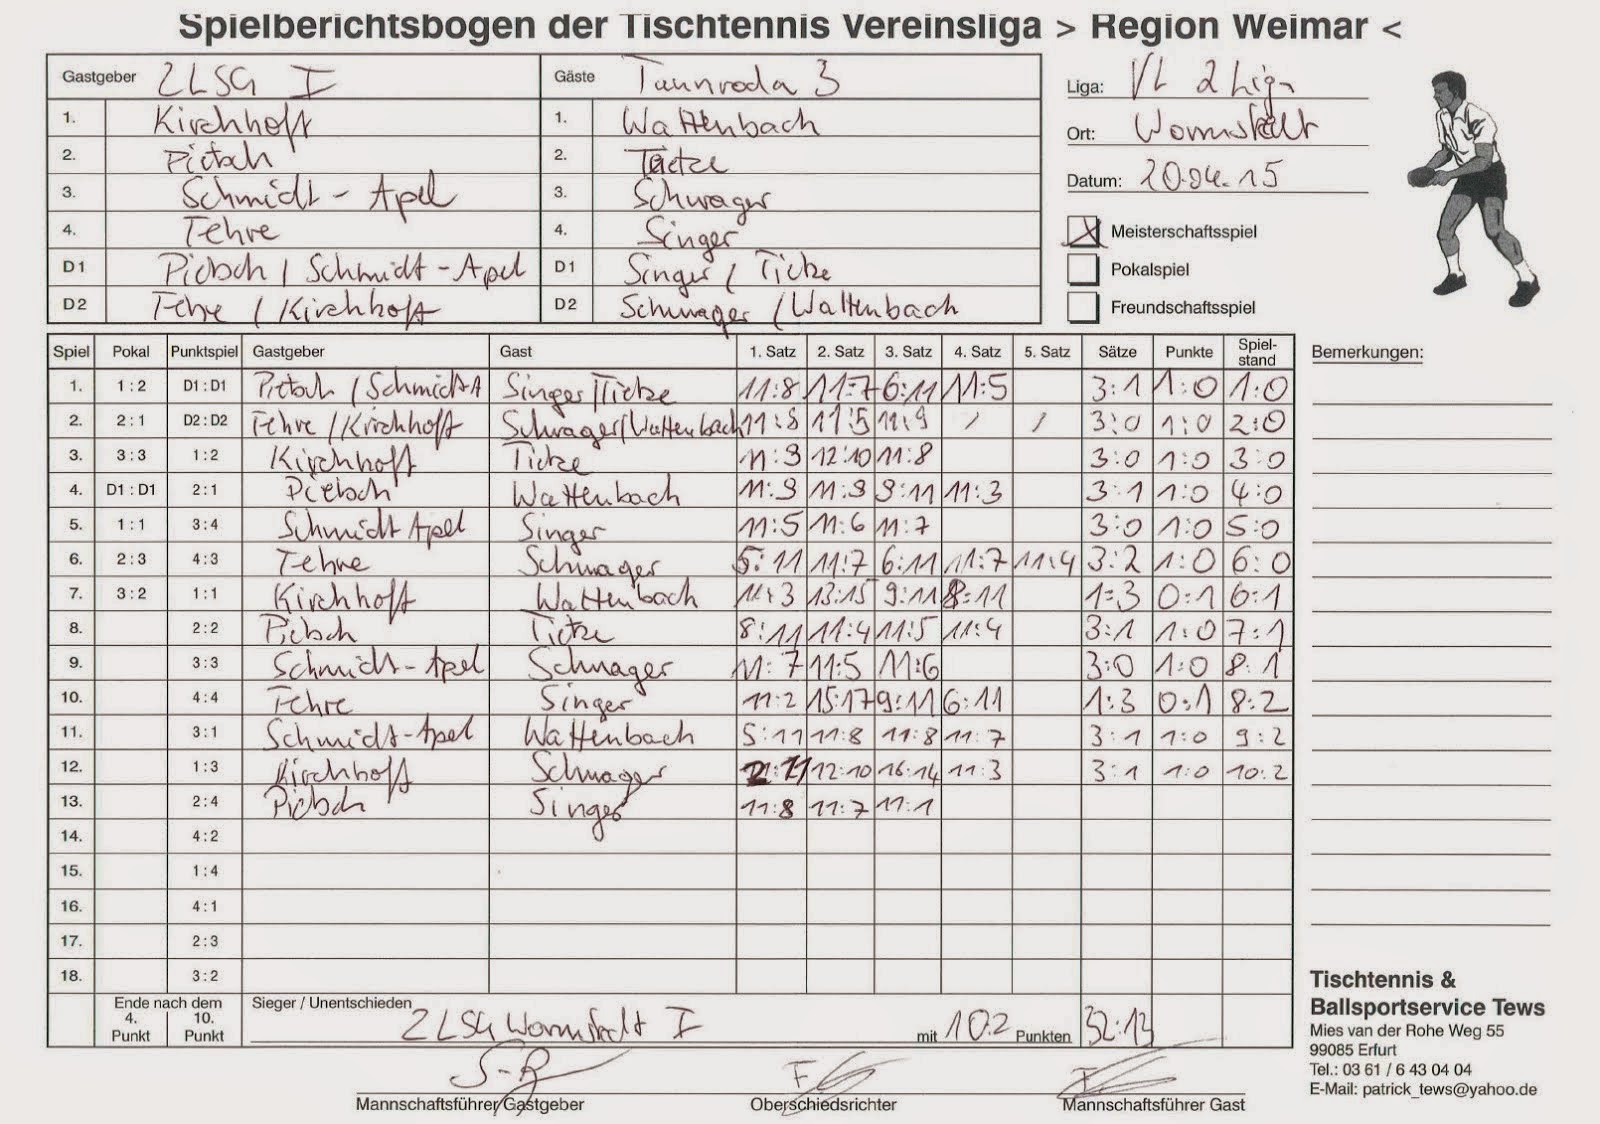 Spielberichtsbogen der Tischtennis Vereinsliga > Region Weimar <
Gastgeber ZLSG I Gäste Tannroda 3
1. Kirchhoff 1. Wattenbach
2. Pietsch 2. Tietze
3. Schmidt - Apel 3. Schwager
4. Fehre 4. Singer
D1 Pietsch / Schmidt - Apel D1 Singer / Tietze
D2 Fehre / Kirchhoff D2 Schwager / Wattenbach
Liga: VL 2 Liga
Ort: Wormstedt
Datum: 20.04.15
Meisterschaftsspiel
Pokalspiel
Freundschaftsspiel
Spiel Pokal Punktspiel Gastgeber Gast 1. Satz 2. Satz 3. Satz 4. Satz 5. Satz Sätze Punkte Spiel-stand Bemerkungen:
1. 1:2 D1:D1 Pietsch / Schmidt A Singer/Tietze 11:8 11:7 6:11 11:5 3:1 1:0 1:0
2. 2:1 D2:D2 Fehre / Kirchhoff Schwager/Wattenbach 11:8 11:5 11:9 / / 3:0 1:0 2:0
3. 3:3 1:2 Kirchhoff Tietze 11:9 12:10 11:8 3:0 1:0 3:0
4. D1:D1 2:1 Pietsch Wattenbach 11:9 11:9 9:11 11:3 3:1 1:0 4:0
5. 1:1 3:4 Schmidt Apel Singer 11:5 11:6 11:7 3:0 1:0 5:0
6. 2:3 4:3 Fehre Schwager 5:11 11:7 6:11 11:7 11:4 3:2 1:0 6:0
7. 3:2 1:1 Kirchhoff Wattenbach 11:3 13:15 9:11 8:11 1:3 0:1 6:1
8. 2:2 Pietsch Tietze 8:11 11:4 11:5 11:4 3:1 1:0 7:1
9. 3:3 Schmidt-Apel Schwager 11:7 11:5 11:6 3:0 1:0 8:1
10. 4:4 Fehre Singer 11:2 15:17 9:11 6:11 1:3 0:1 8:2
11. 3:1 Schmidt-Apel Wattenbach 5:11 11:8 11:8 11:7 3:1 1:0 9:2
12. 1:3 Kirchhoff Schwager 12:10 16:14 11:3 3:1 1:0 10:2
13. 2:4 Pietsch Singer 11:8 11:7 11:1
14. 4:2
15. 1:4
16. 4:1
17. 2:3
18. 3:2
Ende nach dem
4. Punkt 10. Punkt
Sieger / Unentschieden ZLSG Wormstedt I mit 10:2 Punkten 32:13
Mannschaftsführer Gastgeber Oberschiedsrichter Mannschaftsführer Gast
Tischtennis &
Ballsportservice Tews
Mies van der Rohe Weg 55
99085 Erfurt
Tel.: 03 61 / 6 43 04 04
E-Mail: patrick_tews@yahoo.de